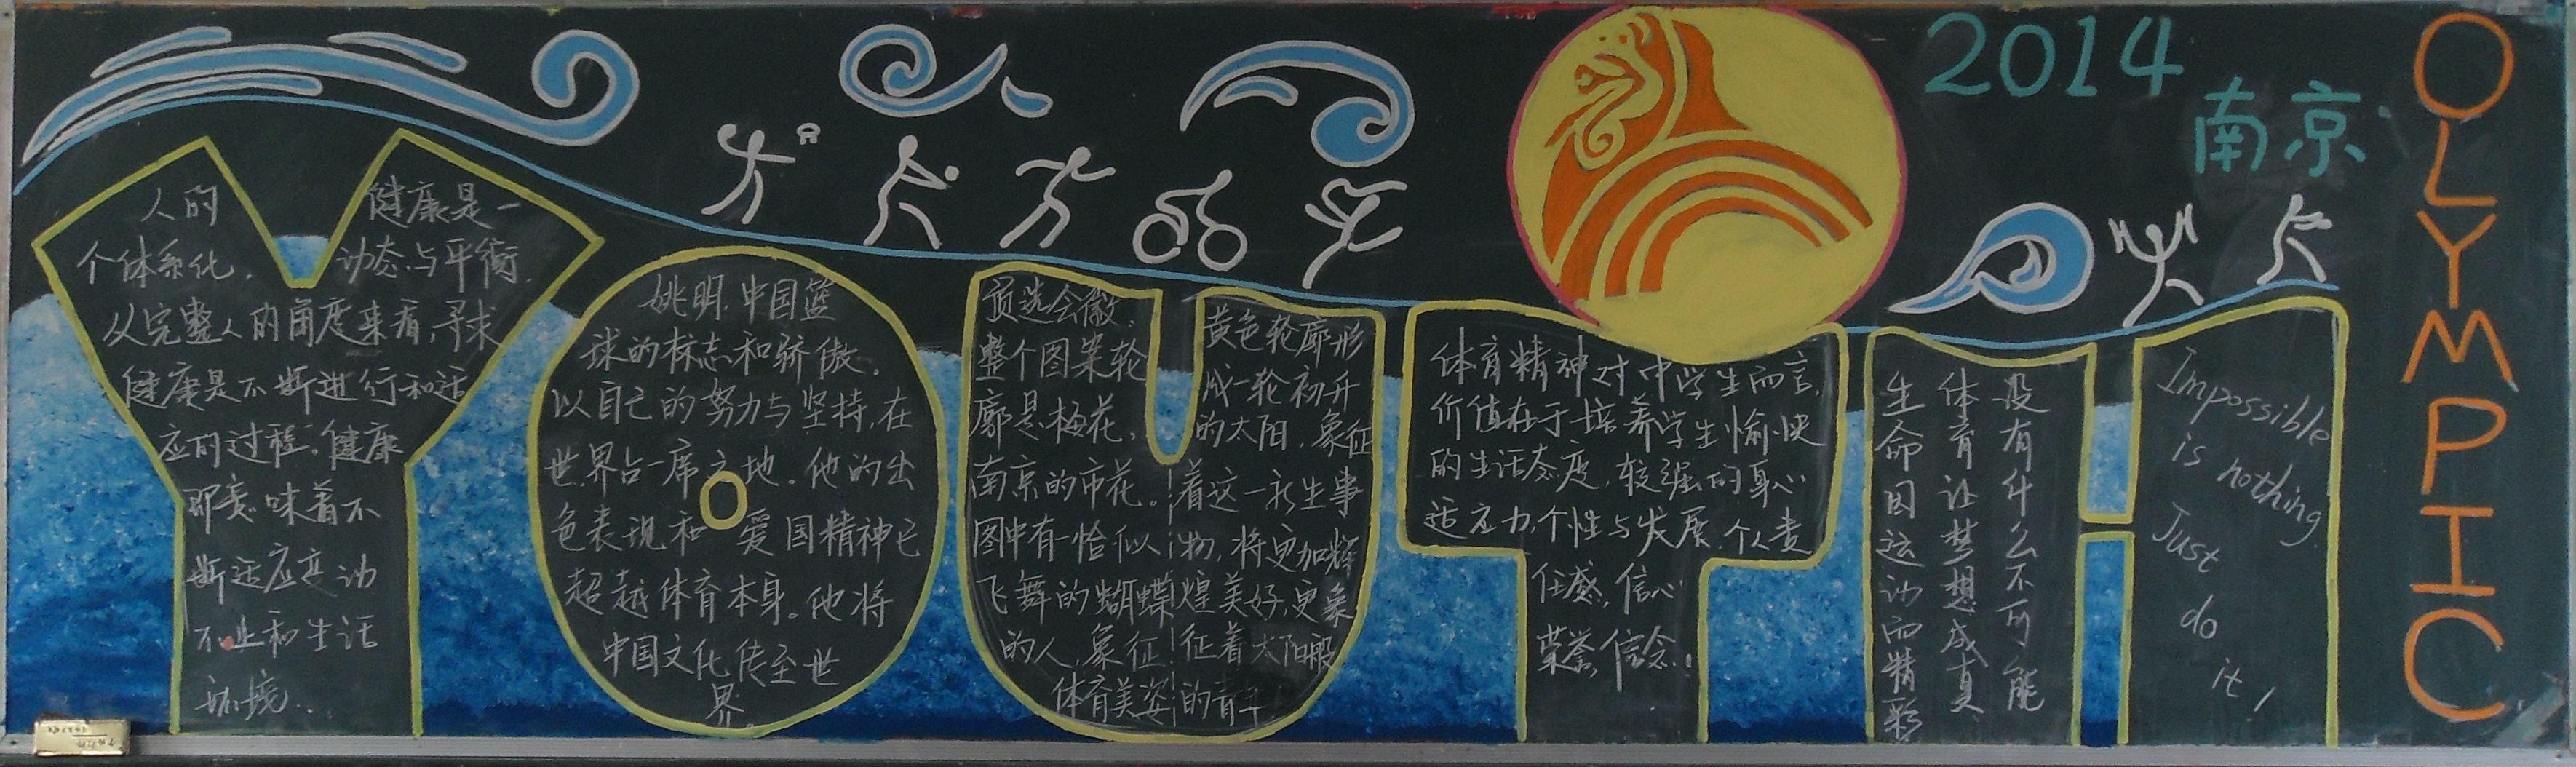 2014
南京
OLYMPIC
YOUTH
人的
个体系化，
健康是一
动态与平衡.
从完整人的角度来看,寻求
健康是不断进行和适
应的过程。健康
即意味着不
断适应运动
不止和生活
环境..
姚明,中国篮
球的标志和骄傲。
以自己的努力与坚持,在
世界占一席之地。他的出
色表现和爱国精神已
超越体育本身。他将
中国文化传至世
界。
预选会徽,
整个图案轮
廓是梅花,
南京的市花。
图中有一恰似
飞舞的蝴蝶
的人,象征
体育美姿
黄色轮廓形
成一轮初升
的太阳,象征
着这一新生事
物,将更加辉
煌美好,更象
征着太阳般
的青年
体育精神对中学生而言,
价值在于培养学生愉快
的生活态度,较强的身心
适应力,个性与发展,个人责
任感,信心
荣誉,信念.
没有什么不可能
体育让梦想成真
生命因运动而精彩
Impossible
is nothing
Just
do
it!